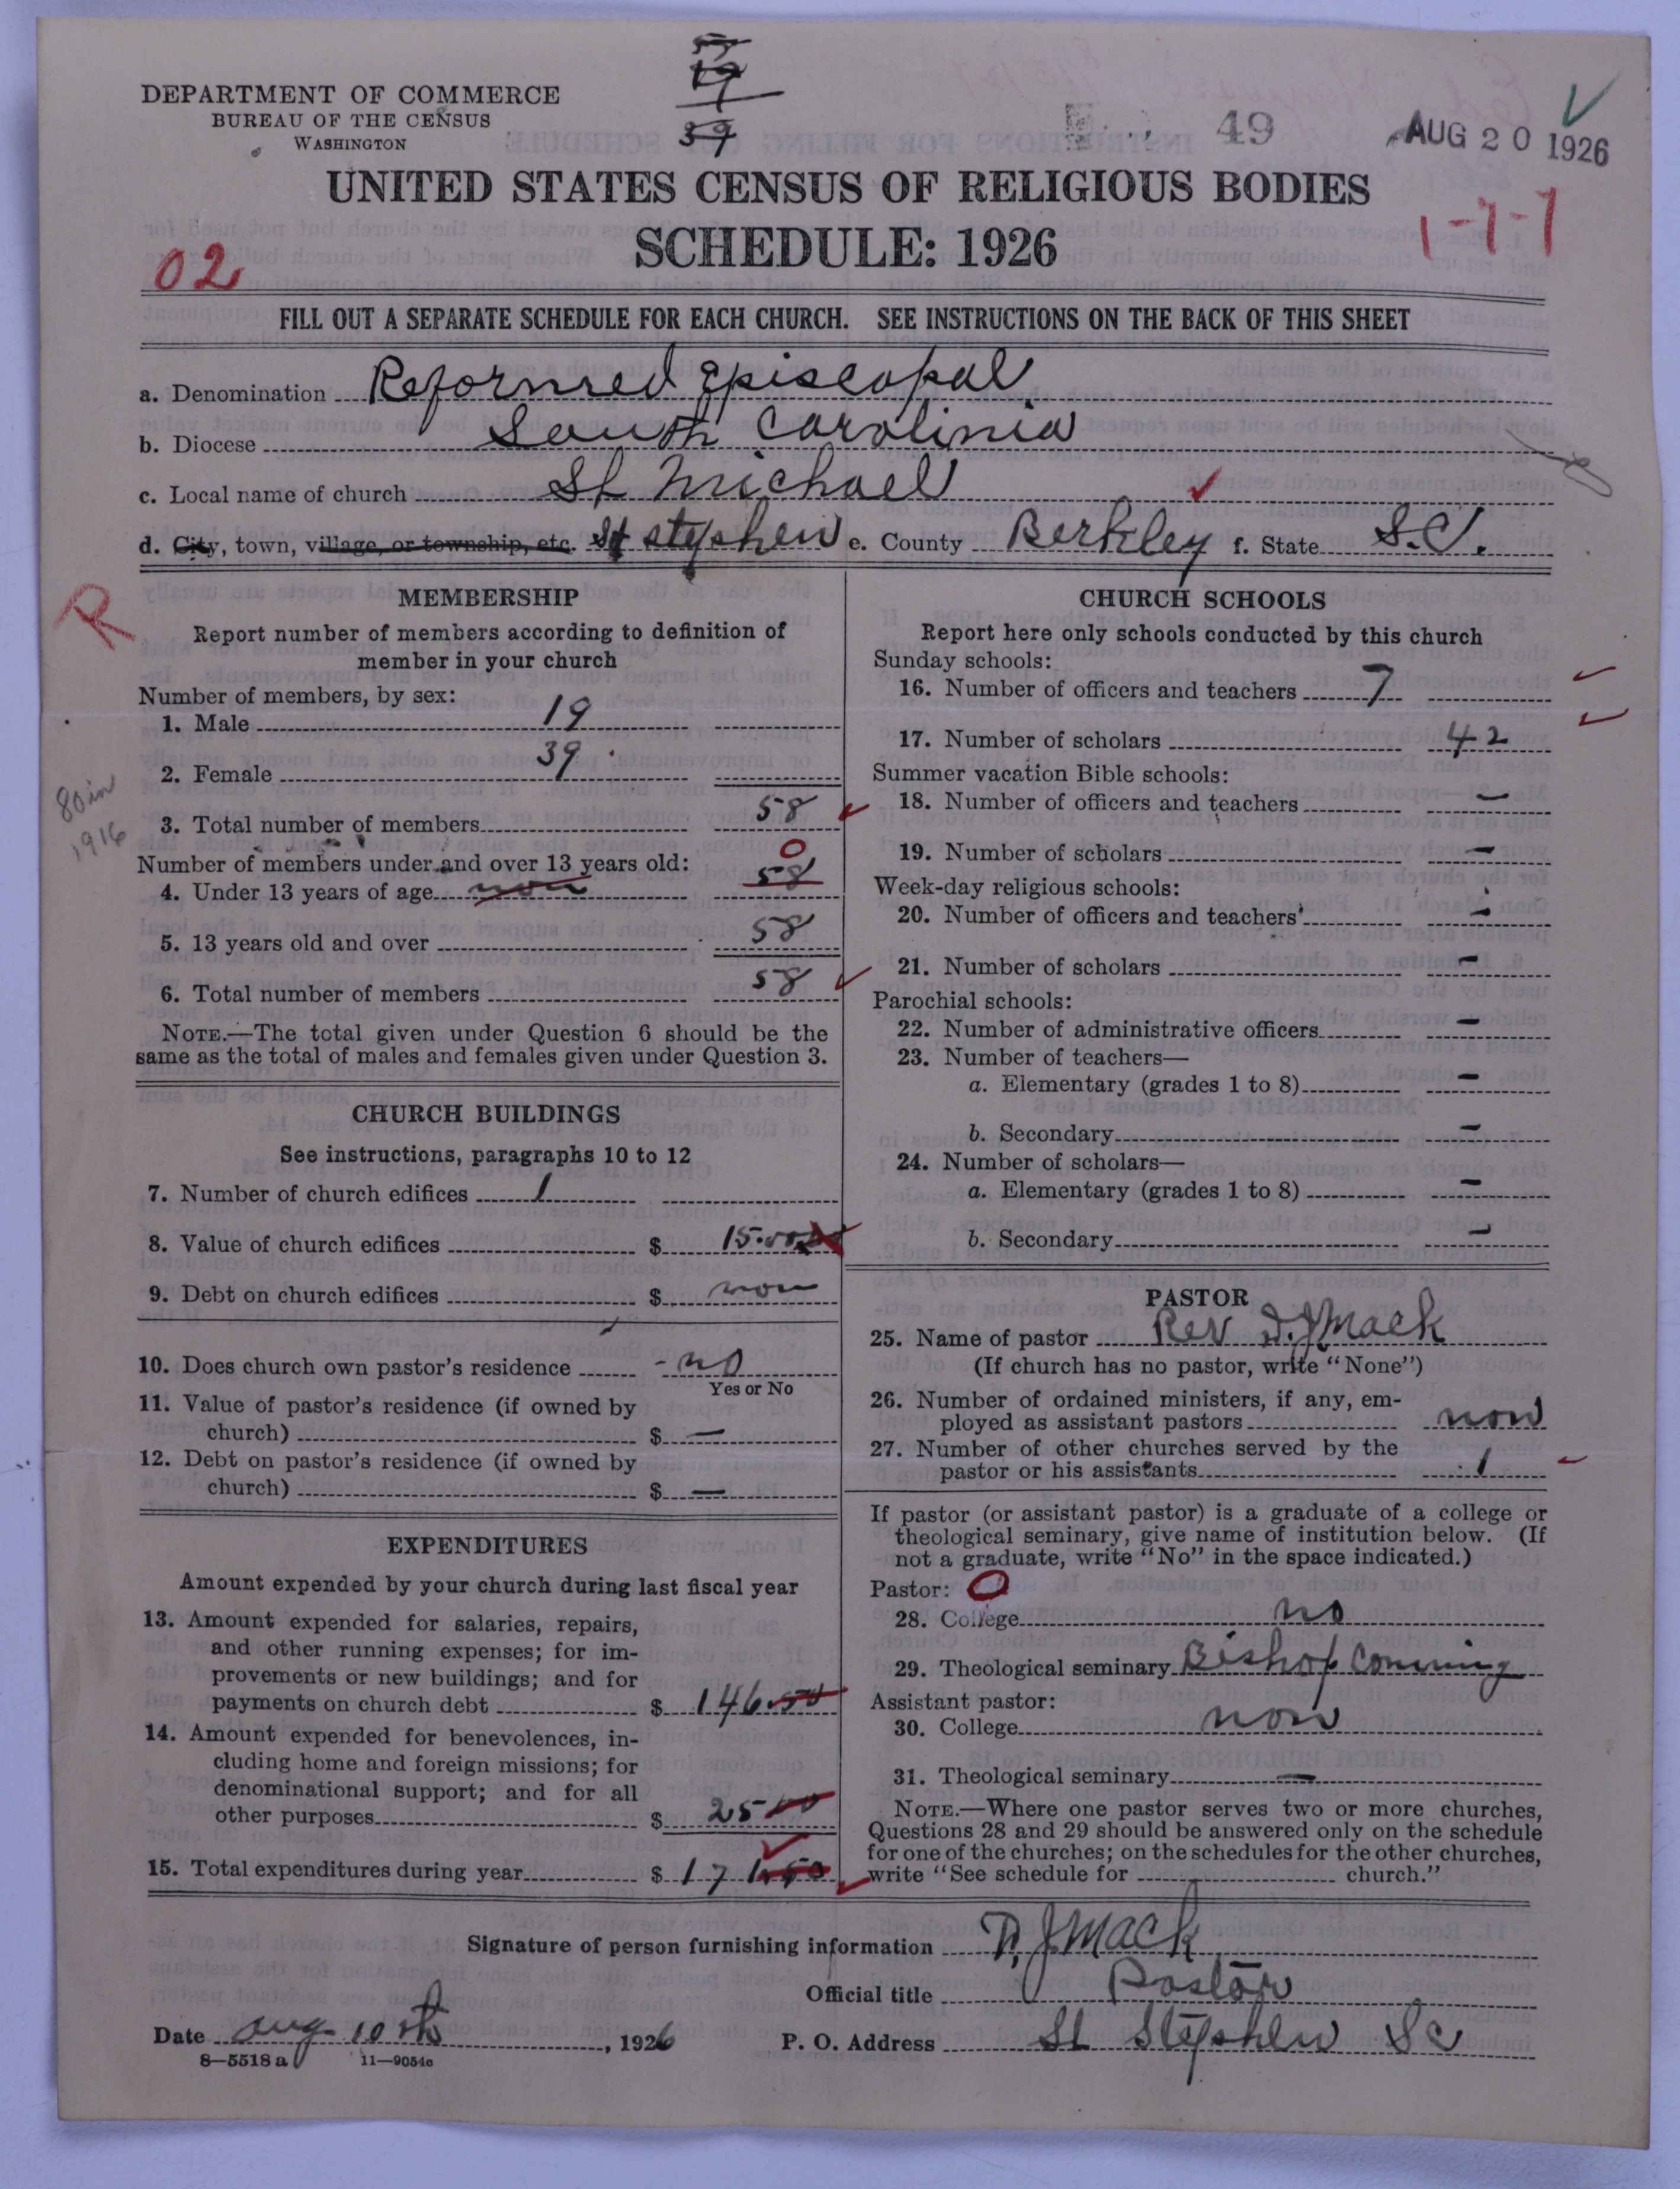 59
19
39
DEPARTMENT OF COMMERCE
BUREAU OF THE CENSUS
WASHINGTON
49
AUG 20 1926
UNITED STATES CENSUS OF RELIGIOUS BODIES
SCHEDULE: 1926
02
1-7-7
FILL OUT A SEPARATE SCHEDULE FOR EACH CHURCH. SEE INSTRUCTIONS ON THE BACK OF THIS SHEET
a. Denomination Reformed Episcopal
b. Diocese South Carolinia
c. Local name of church St Michael
d. City, town, village, or township, etc. St Stephen e. County Berkley f. State S.C.
R
MEMBERSHIP
Report number of members according to definition of
member in your church
Number of members, by sex:
1. Male 19
2. Female 39
3. Total number of members 58
80 in
1916
Number of members under and over 13 years old:
0
4. Under 13 years of age non 58
5. 13 years old and over 58
6. Total number of members 58
NOTE.—The total given under Question 6 should be the
same as the total of males and females given under Question 3.
CHURCH BUILDINGS
See instructions, paragraphs 10 to 12
7. Number of church edifices 1
8. Value of church edifices $
9. Debt on church edifices $ non
10. Does church own pastor's residence - no
Yes or No
11. Value of pastor's residence (if owned by
church) $ —
12. Debt on pastor's residence (if owned by
church) $ —
EXPENDITURES
Amount expended by your church during last fiscal year
13. Amount expended for salaries, repairs,
and other running expenses; for im-
provements or new buildings; and for
payments on church debt $ 146.50
14. Amount expended for benevolences, in-
cluding home and foreign missions; for
denominational support; and for all
other purposes $ 25 00
15. Total expenditures during year $ 171.50
CHURCH SCHOOLS
Report here only schools conducted by this church
Sunday schools:
16. Number of officers and teachers 7
17. Number of scholars 42
Summer vacation Bible schools:
18. Number of officers and teachers —
19. Number of scholars —
Week-day religious schools:
20. Number of officers and teachers —
21. Number of scholars —
Parochial schools:
22. Number of administrative officers —
23. Number of teachers—
a. Elementary (grades 1 to 8) —
b. Secondary —
24. Number of scholars—
a. Elementary (grades 1 to 8) —
b. Secondary —
PASTOR
25. Name of pastor Rev D. J Mack
(If church has no pastor, write "None")
26. Number of ordained ministers, if any, em-
ployed as assistant pastors non
27. Number of other churches served by the
pastor or his assistants 1
If pastor (or assistant pastor) is a graduate of a college or
theological seminary, give name of institution below. (If
not a graduate, write "No" in the space indicated.)
Pastor: O
28. College no
29. Theological seminary Bishop
Assistant pastor:
30. College non
31. Theological seminary —
NOTE.—Where one pastor serves two or more churches,
Questions 28 and 29 should be answered only on the schedule
for one of the churches; on the schedules for the other churches,
write "See schedule for church."
Signature of person furnishing information D. J Mack
Official title Pastor
Date Aug 10th, 1926 P. O. Address St Stephen S C
8—5518 a 11—9054c